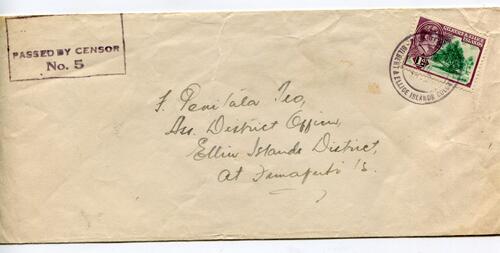 PASSED BY CENSOR
No. 5
GILBERT & ELLICE
ISLANDS
GILBERT & ELLICE ISLANDS COLONY
F. Penitala Teo,
Ass. District Officer,
Ellice Islands District,
at